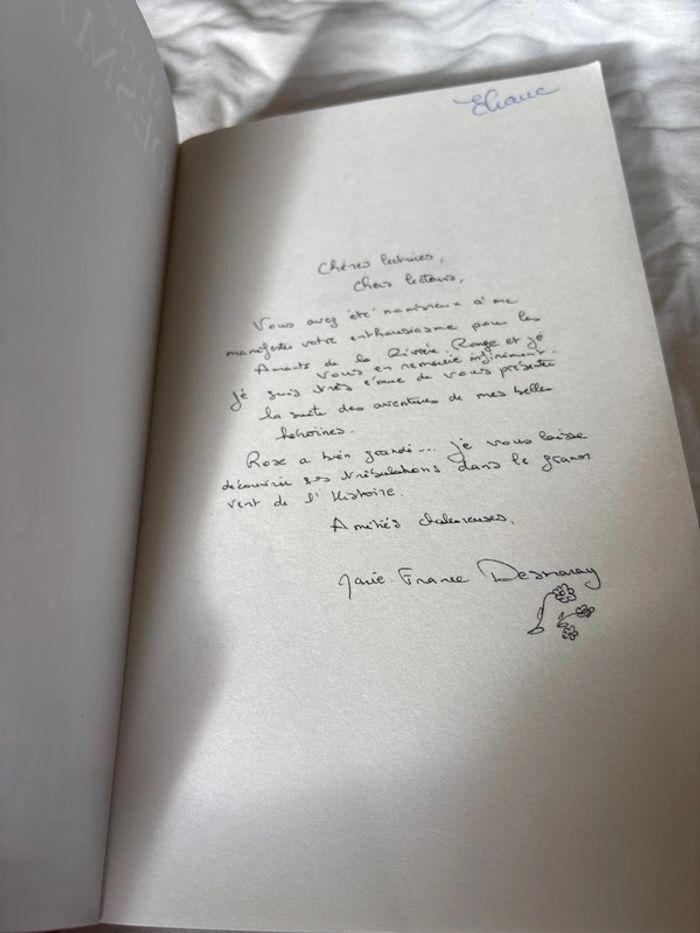 Eliane
Chères lectrices,
Chers lecteurs,
Vous avez été nombreux à me
manifester votre enthousiasme pour les
Amants de la Rivière Rouge et je
vous en remercie infiniment.
Je suis très émue de vous présenter
la suite des aventures de mes belles
héroïnes.
Rose a bien grandi... je vous laisse
découvrir ses tribulations dans le grand
vent de l'Histoire.
Amitiés chaleureuses,
Marie-France Desmaray